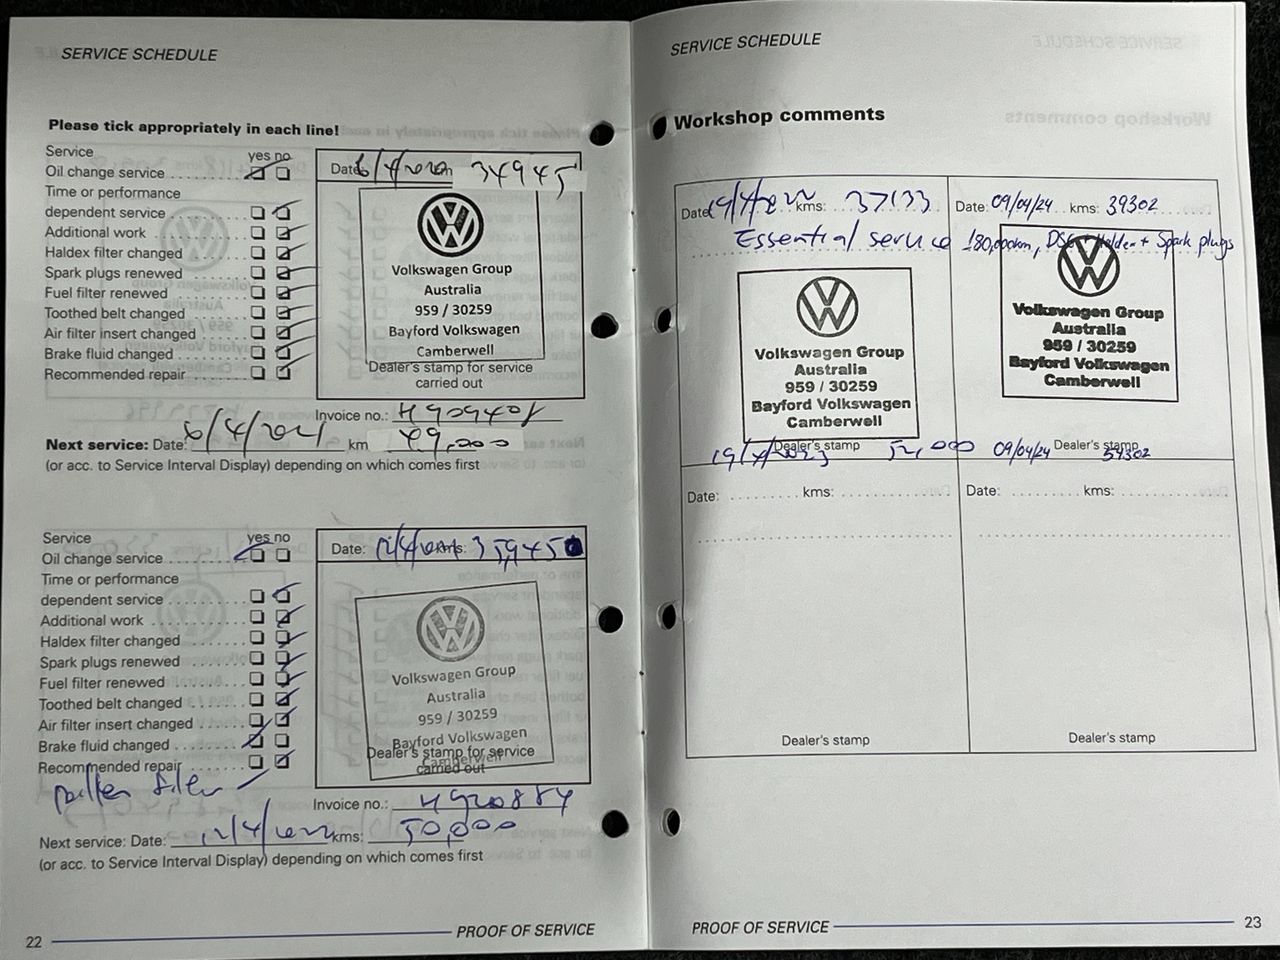 SERVICE SCHEDULE
Please tick appropriately in each line!
Service yes no
Oil change service
Time or performance
dependent service
Additional work
Haldex filter changed
Spark plugs renewed
Fuel filter renewed
Toothed belt changed
Air filter insert changed
Brake fluid changed
Recommended repair
Date: 6/4/2020 34945
Volkswagen Group
Australia
959 / 30259
Bayford Volkswagen
Camberwell
Dealer's stamp for service
carried out
Invoice no.:
Next service: Date: 6/4/2021 km 49,000
(or acc. to Service Interval Display) depending on which comes first
Service yes no
Oil change service
Time or performance
dependent service
Additional work
Haldex filter changed
Spark plugs renewed
Fuel filter renewed
Toothed belt changed
Air filter insert changed
Brake fluid changed
Recommended repair
pollen filter
Date: 12/4/2021 kms: 35,945
Volkswagen Group
Australia
959 / 30259
Bayford Volkswagen
Camberwell
Dealer's stamp for service
carried out
Invoice no.: 4920884
Next service: Date: 12/4/2022 kms: 50,000
(or acc. to Service Interval Display) depending on which comes first
22 PROOF OF SERVICE
SERVICE SCHEDULE
Workshop comments
Date: 19/4/2022 kms: 37133
Essential service
Volkswagen Group
Australia
959 / 30259
Bayford Volkswagen
Camberwell
Dealer's stamp
19/4/2023 52,000
Date: 09/04/24 kms: 39302
180,000km, DSG + Halden + Spark plugs
Volkswagen Group
Australia
959 / 30259
Bayford Volkswagen
Camberwell
Dealer's stamp
09/04/24 39302
Date: kms:
Dealer's stamp
Date: kms:
Dealer's stamp
PROOF OF SERVICE 23